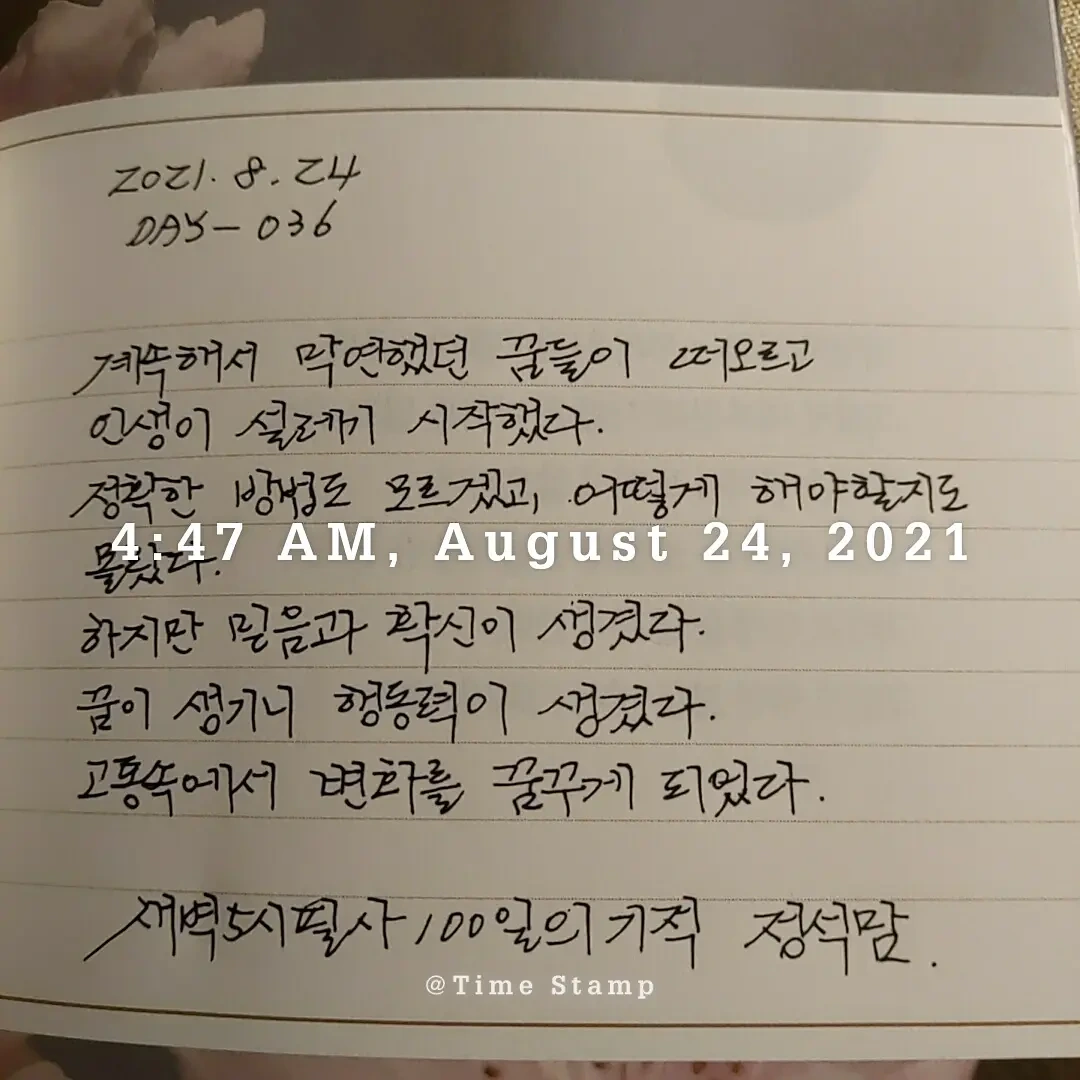 2021. 8. 24
DAY - 036
계속해서 막연했던 꿈들이 떠오르고
인생이 설레기 시작했다.
정확한 방법도 모르겠고, 어떻게 해야할지도
4:47 AM, August 24, 2021
몰랐다.
하지만 믿음과 확신이 생겼다.
꿈이 생기니 행동력이 생겼다.
고통속에서 변화를 꿈꾸게 되었다.
새벽5시필사 100일의 기적 정석맘.
@Time Stamp